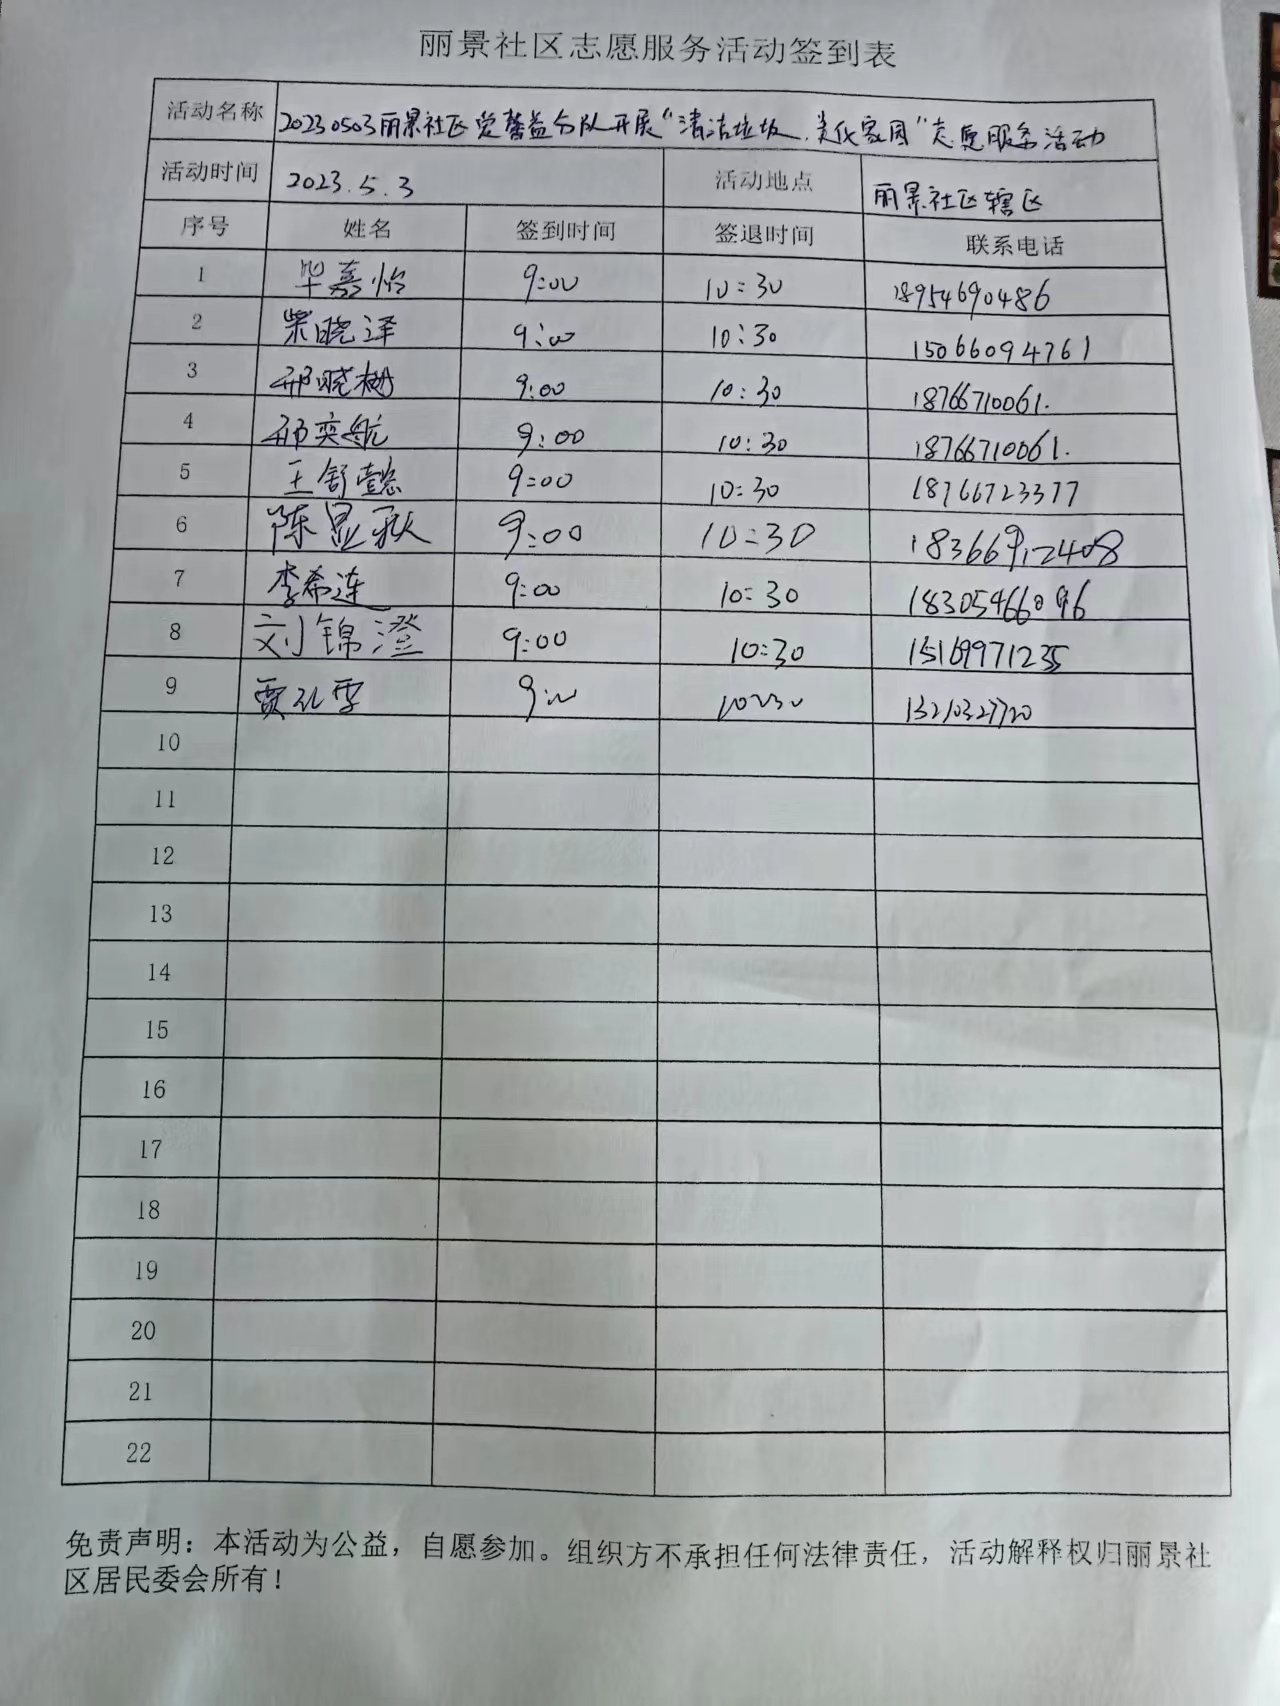 丽景社区志愿服务活动签到表
活动名称 20230503丽景社区党馨益分队开展“清洁垃圾、美化家园”志愿服务活动
活动时间 2023.5.3 活动地点 丽景社区辖区
序号 姓名 签到时间 签退时间 联系电话
1 毕嘉怡 9:00 10:30 18954690486
2 柴晓泽 9:00 10:30 15066094761
3 邢晓树 9:00 10:30 18766710061.
4 邢奕航 9:00 10:30 18766710061.
5 王舒懿 9:00 10:30 18766723377
6 陈显 9:00 10:30 18366912408
7 李希连 9:00 10:30 18305466096
8 刘锦澄 9:00 10:30 15169971235
9 贾孔雪 9:00 10:30 13210327720
10
11
12
13
14
15
16
17
18
19
20
21
22
免责声明：本活动为公益，自愿参加。组织方不承担任何法律责任，活动解释权归丽景社
区居民委会所有！